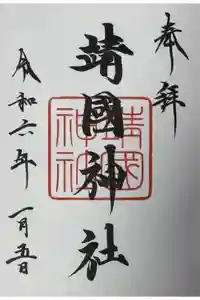 奉拝
靖國神社
靖國
神社
令和六年 一月五日